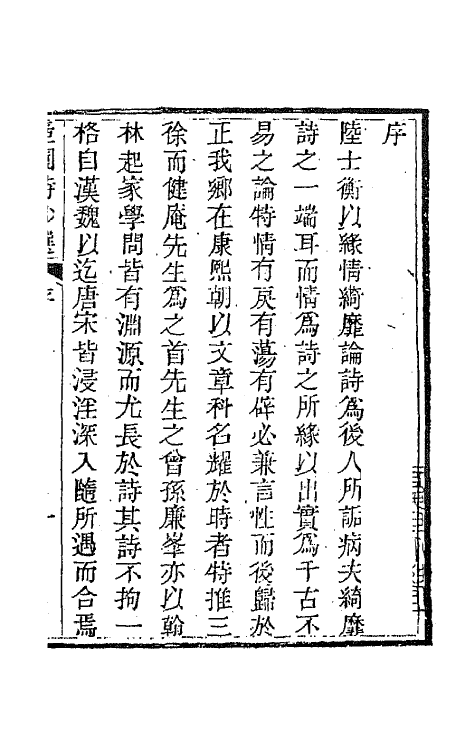 序
陸士衡以緣情綺靡論詩爲後人所詬病夫綺靡
詩之一端耳而情爲詩之所緣以出實爲千古不
易之論特情有戾有蕩有僻必兼言性而後歸於
正我鄉在康熙朝以文章科名耀於時者特推三
徐而健庵先生爲之首先生之曾孫廉峯亦以翰
林起家學問皆有淵源而尤長於詩其詩不拘一
格自漢魏以迄唐宋皆浸淫深入隨所遇而合焉
序 一